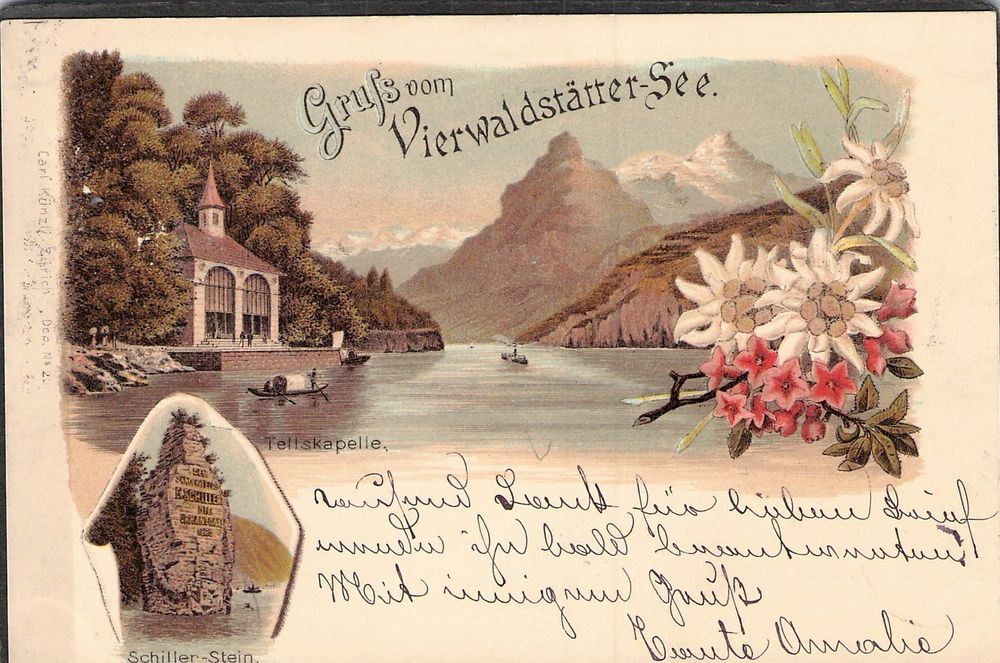 Gruss vom
Vierwaldstätter-See.
Carl Künzli, Zürich, Dep. No 2.
Tellskapelle.
DEM
SÄNGER TELLS
F. SCHILLER
DIE
URKANTONE
Schiller-Stein.
tausend Dank für lieben Brief
werde ihn bald beantworten
Mit innigem Gruß
Tante Amalie